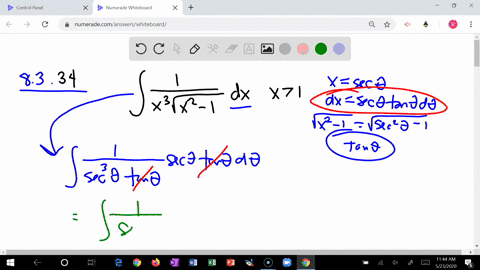 Control Panel
Numerade Whiteboard
numerade.com/answers/whiteboard/
8.3.34
∫ 1/(x³√(x²-1)) dx x>1
x = secθ
dx = secθ tanθ dθ
√(x²-1) = √(sec²θ-1)
tanθ
∫ 1/(sec³θ tanθ) secθ tanθ dθ
= ∫ 1/s
11:44 AM
5/23/2020